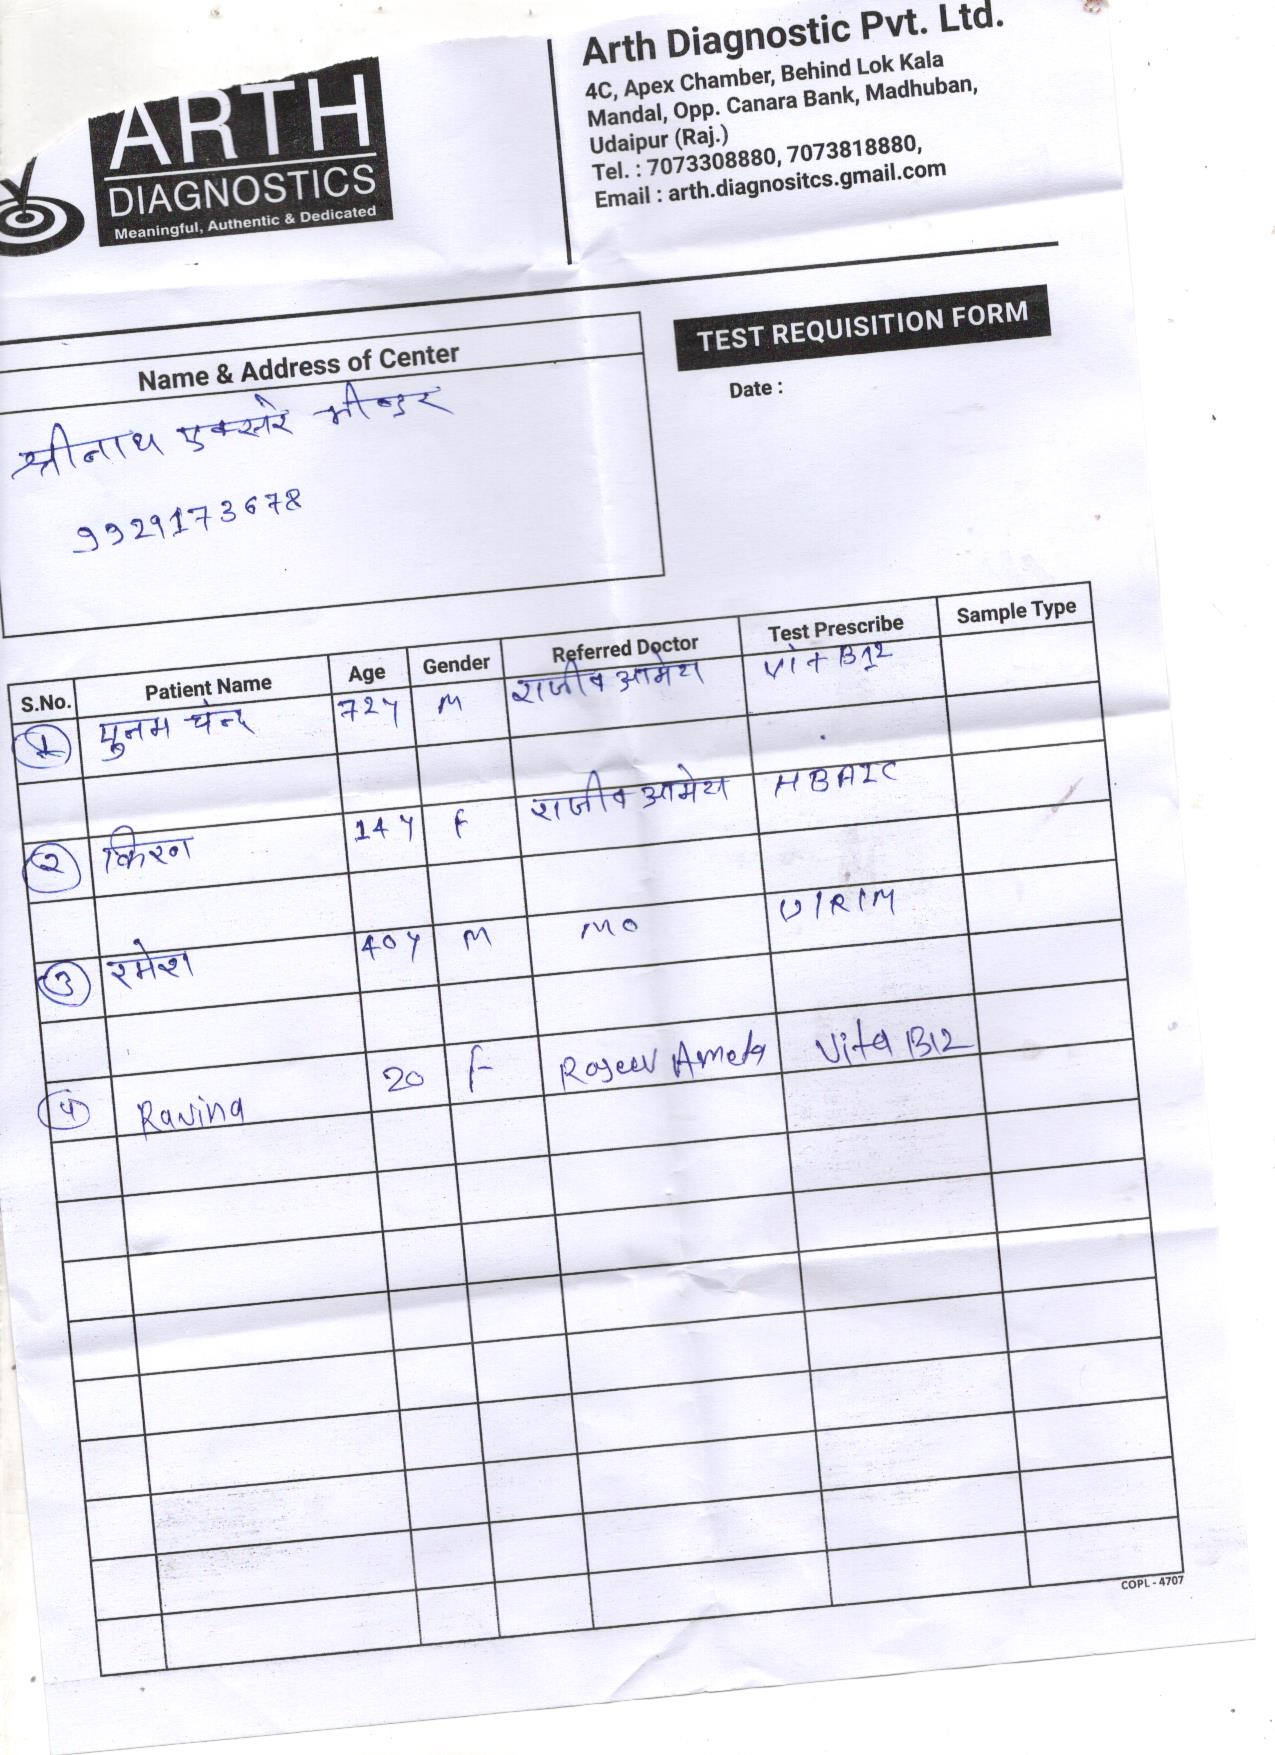 ARTH
DIAGNOSTICS
Meaningful, Authentic & Dedicated
Arth Diagnostic Pvt. Ltd.
4C, Apex Chamber, Behind Lok Kala
Mandal, Opp. Canara Bank, Madhuban,
Udaipur (Raj.)
Tel. : 7073308880, 7073818880,
Email : arth.diagnositcs.gmail.com
TEST REQUISITION FORM
Date :
Name & Address of Center
श्रीनाथ एक्सरे भीण्डर
9929173678
S.No. Patient Name Age Gender Referred Doctor Test Prescribe Sample Type
1 पुनम चन्द 72y M राजीव आमेटा Vit B12
2 किरन 14y F राजीव आमेटा HBA1C
3 रमेश 40y M MO U/R/M
4 Ravina 20 F Rajeev Ameta Vita B12
COPL - 4707